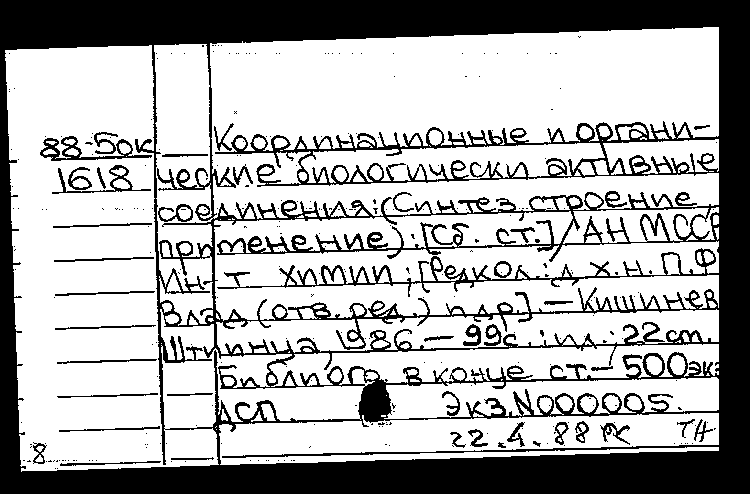 88-5ок Координационные и органи-
1618 ческие биологически активные
соединения: (Синтез, строение,
применение): [Сб. ст.] / АН МССР
Ин-т химии; [Редкол.: д.х.н. П.Ф
Влад (отв. ред.) и др.]. — Кишинев
Штиинца, 1986. — 99с. : ил.; 22 см.
Библиогр. в конце ст. — 500 экз
ДСП. Экз. N000005.
22.4.88 ТН
8